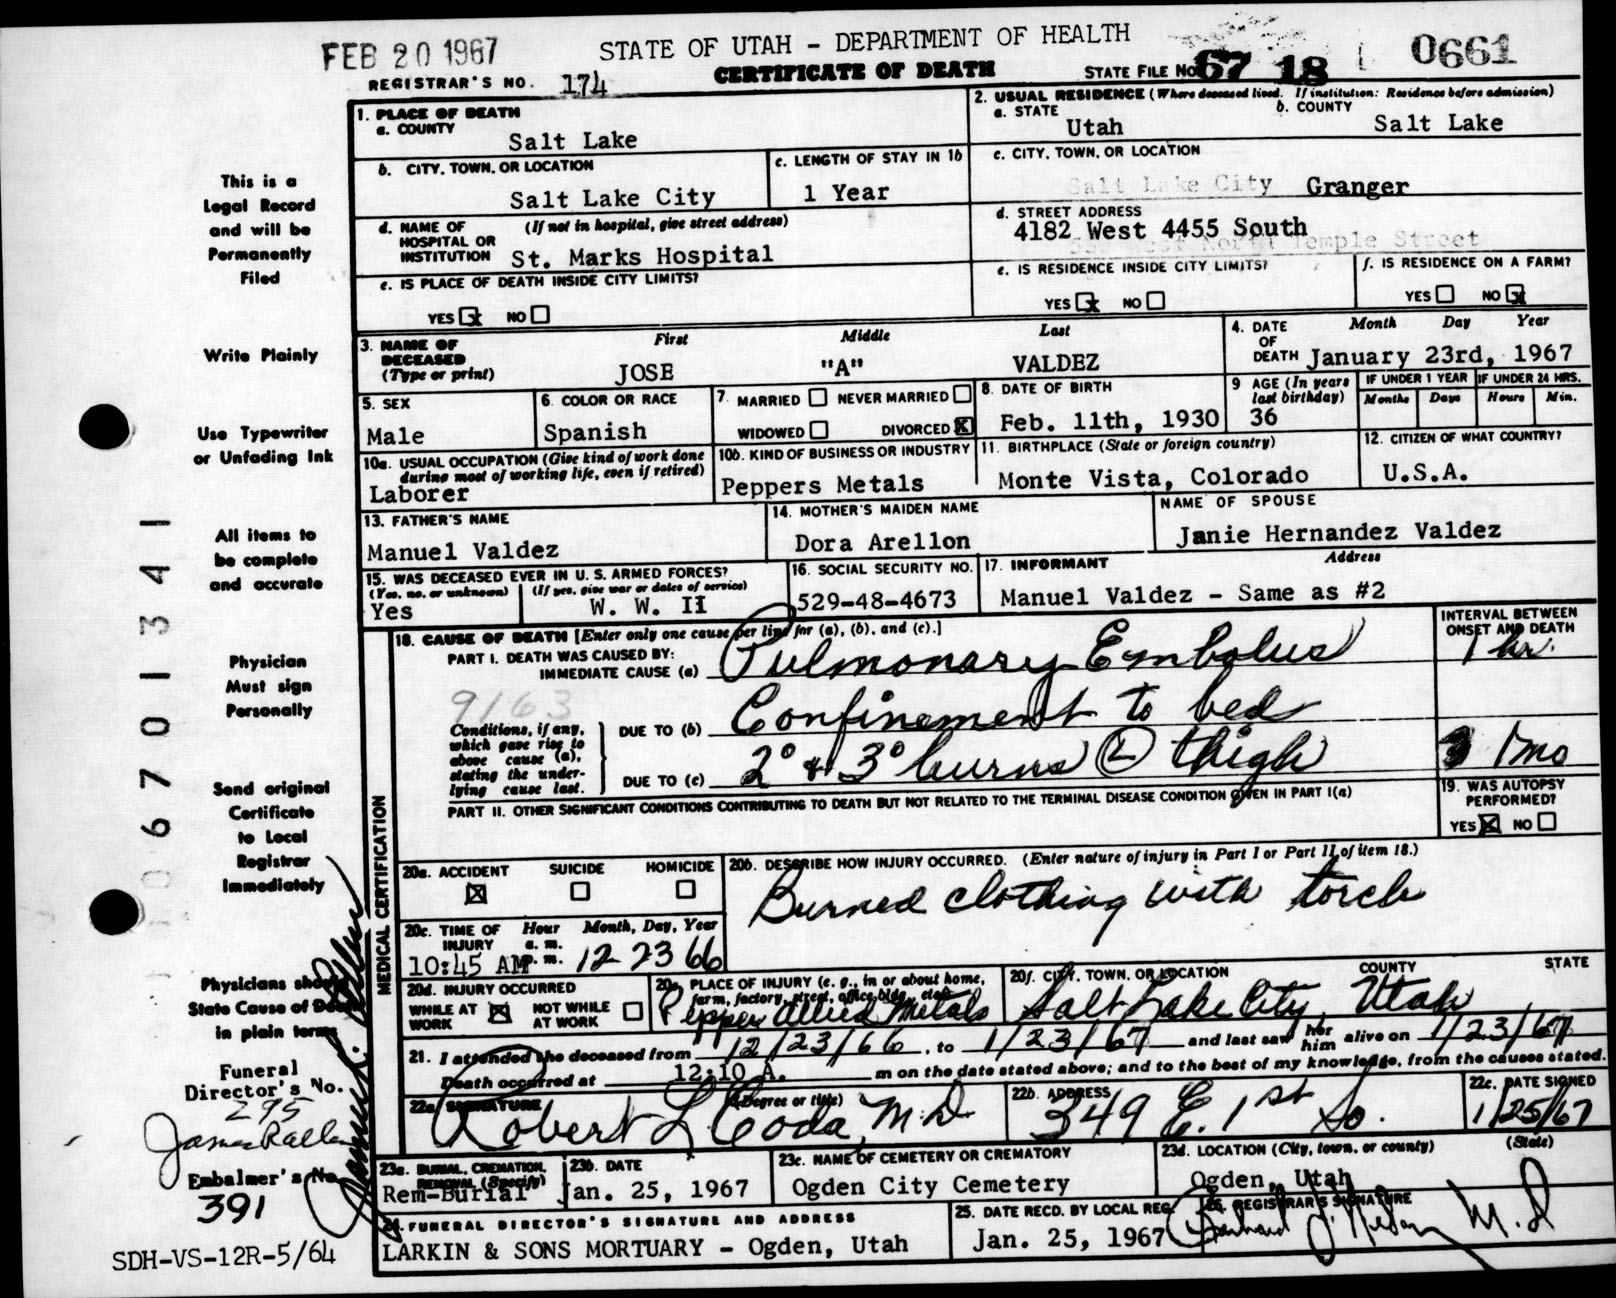 FEB 20 1967
STATE OF UTAH - DEPARTMENT OF HEALTH
CERTIFICATE OF DEATH
REGISTRAR'S NO. 174
STATE FILE NO. 67 18 0661
1. PLACE OF DEATH
a. COUNTY
Salt Lake
2. USUAL RESIDENCE (Where deceased lived. If institution: Residence before admission)
a. STATE b. COUNTY
Utah Salt Lake
b. CITY, TOWN, OR LOCATION
Salt Lake City
c. LENGTH OF STAY IN 1b
1 Year
c. CITY, TOWN, OR LOCATION
Salt Lake City Granger
d. NAME OF HOSPITAL OR INSTITUTION (If not in hospital, give street address)
St. Marks Hospital
d. STREET ADDRESS
4182 West 4455 South
West North Temple Street
e. IS PLACE OF DEATH INSIDE CITY LIMITS?
YES x NO
e. IS RESIDENCE INSIDE CITY LIMITS?
YES x NO
f. IS RESIDENCE ON A FARM?
YES NO x
3. NAME OF DECEASED (Type or print)
First Middle Last
JOSE "A" VALDEZ
4. DATE OF DEATH Month Day Year
January 23rd, 1967
5. SEX
Male
6. COLOR OR RACE
Spanish
7. MARRIED NEVER MARRIED
WIDOWED DIVORCED X
8. DATE OF BIRTH
Feb. 11th, 1930
9 AGE (In years last birthday)
36
IF UNDER 1 YEAR IF UNDER 24 HRS.
Months Days Hours Min.
10a. USUAL OCCUPATION (Give kind of work done during most of working life, even if retired)
Laborer
10b. KIND OF BUSINESS OR INDUSTRY
Peppers Metals
11. BIRTHPLACE (State or foreign country)
Monte Vista, Colorado
12. CITIZEN OF WHAT COUNTRY?
U.S.A.
13. FATHER'S NAME
Manuel Valdez
14. MOTHER'S MAIDEN NAME
Dora Arellon
NAME OF SPOUSE
Janie Hernandez Valdez
15. WAS DECEASED EVER IN U. S. ARMED FORCES?
(Yes, no, or unknown) (If yes, give war or dates of service)
Yes W. W. II
16. SOCIAL SECURITY NO.
529-48-4673
17. INFORMANT Address
Manuel Valdez - Same as #2
18. CAUSE OF DEATH [Enter only one cause per line for (a), (b), and (c).]
INTERVAL BETWEEN ONSET AND DEATH
PART I. DEATH WAS CAUSED BY:
IMMEDIATE CAUSE (a) Pulmonary Embolus 1 hr.
9163
Conditions, if any, which gave rise to above cause (a), stating the underlying cause last.
DUE TO (b) Confinement to bed
DUE TO (c) 2° & 3° burns (L) thigh 1 mo
PART II. OTHER SIGNIFICANT CONDITIONS CONTRIBUTING TO DEATH BUT NOT RELATED TO THE TERMINAL DISEASE CONDITION GIVEN IN PART I(a)
19. WAS AUTOPSY PERFORMED?
YES X NO
20a. ACCIDENT SUICIDE HOMICIDE
X
20b. DESCRIBE HOW INJURY OCCURRED. (Enter nature of injury in Part I or Part II of item 18.)
Burned clothing with torch
20c. TIME OF INJURY Hour a. m. p. m. Month, Day, Year
10:45 AM 12 23 66
20d. INJURY OCCURRED
WHILE AT WORK X NOT WHILE AT WORK
20e. PLACE OF INJURY (e. g., in or about home, farm, factory, street, office bldg., etc.)
Pepper Allied Metals
20f. CITY, TOWN, OR LOCATION COUNTY STATE
Salt Lake City, Utah
21. I attended the deceased from 12/23/66, to 1/23/67 and last saw her him alive on 1/23/67
Death occurred at 12:10 A. m on the date stated above; and to the best of my knowledge, from the causes stated.
22a. SIGNATURE (Degree or title)
Robert L Coda, M D
22b. ADDRESS
349 E. 1st So.
22c. DATE SIGNED
1/25/67
23a. BURIAL, CREMATION, REMOVAL (Specify)
Rem-Burial
23b. DATE
Jan. 25, 1967
23c. NAME OF CEMETERY OR CREMATORY
Ogden City Cemetery
23d. LOCATION (City, town, or county) (State)
Ogden, Utah
24. FUNERAL DIRECTOR'S SIGNATURE AND ADDRESS
LARKIN & SONS MORTUARY - Ogden, Utah
25. DATE RECD. BY LOCAL REG.
Jan. 25, 1967
26. REGISTRAR'S SIGNATURE
M.D
MEDICAL CERTIFICATION
This is a
Legal Record
and will be
Permanently
Filed
Write Plainly
Use Typewriter
or Unfading Ink
All items to
be complete
and accurate
Physician
Must sign
Personally
Send original
Certificate
to Local
Registrar
Immediately
Physicians should
State Cause of Death
in plain terms
Funeral
Director's No.
295
Embalmer's No.
391
SDH-VS-12R-5/64
06701341